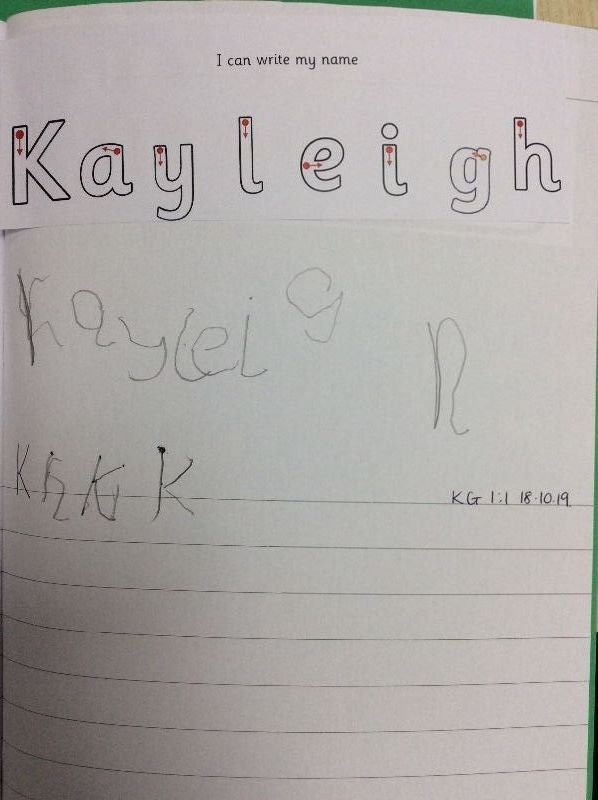 I can write my name
Kayleigh
Kayleig h
K K K K
KG 1:1 18.10.19.